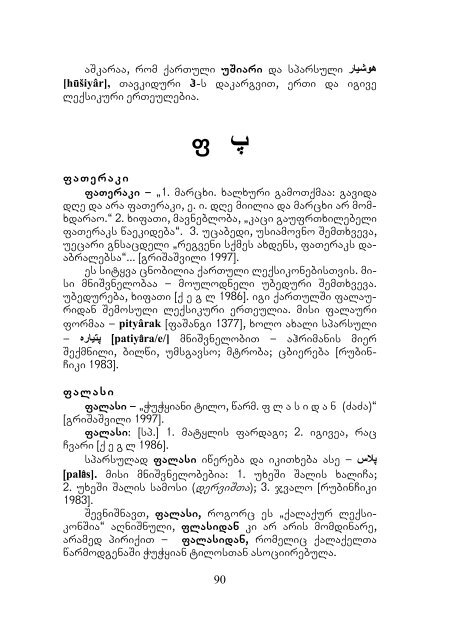 აშკარაა, რომ ქართული უშიარი და სპარსული هوشیار
[hūšiyâr], თავკიდური ჰ-ს დაკარგვით, ერთი და იგივე
ლექსიკური ერთეულებია.
ფ پ
ფათერაკი
ფათერაკი – „1. მარცხი. ხალხური გამოთქმაა: გავიდა
დღე და არა ფათერაკი, ე. ი. დღე მიილია და მარცხი არ მომ-
ხდარაო.“ 2. ხიფათი, მავნებლობა, „კაცი გაუფრთხილებელი
ფათერაკს წაეკიდება“. 3. უცაბედი, უსიამოვნო შემთხვევა,
უეცარი განსაცდელი „რეგვენი სქმეს ახდენს, ფათერაკს და-
აბრალებსა“... [გრიშაშვილი 1997].
ეს სიტყვა ცნობილია ქართული ლექსიკონებისთვის. მი-
სი მნიშვნელობაა – მოულოდნელი უბედური შემთხვევა.
უბედურება, ხიფათი [ქ ე გ ლ 1986]. იგი ქართულში ფალაუ-
რიდან შემოსული ლექსიკური ერთეულია. მისი ფალაური
ფორმაა – pityârak [ფაშანგი 1377], ხოლო ახალი სპარსული
– پتیاره [patiyâra/e/] მნიშვნელობით – აჰრიმანის მიერ
შექმნილი, ბილწი, უმსგავსო; მტრობა; ცბიერება [რუბინ-
ჩიკი 1983].
ფალასი
ფალასი – „ჭუჭყიანი ტილო, წარმ. ფ ლ ა ს ი დ ა ნ (ძაძა)“
[გრიშაშვილი 1997].
ფალასი: [სპ.] 1. მატყლის ფარდაგი; 2. იგივეა, რაც
ჩვარი [ქ ე გ ლ 1986].
სპარსულად ფალასი იწერება და იკითხება ასე – پلاس
[palâs]. მისი მნიშვნელობებია: 1. უხეში შალის ხალიჩა;
2. უხეში შალის სამოსი (დერვიშთა); 3. ჯვალო [რუბინჩიკი
1983].
შევნიშნავთ, ფალასი, როგორც ეს „ქალაქურ ლექსი-
კონშია“ აღნიშნული, ფლასიდან კი არ არის მომდინარე,
არამედ პირიქით – ფალასიდან, რომელიც ქალაქელთა
წარმოდგენაში ჭუჭყიან ტილოსთან ასოციირებულა.
90